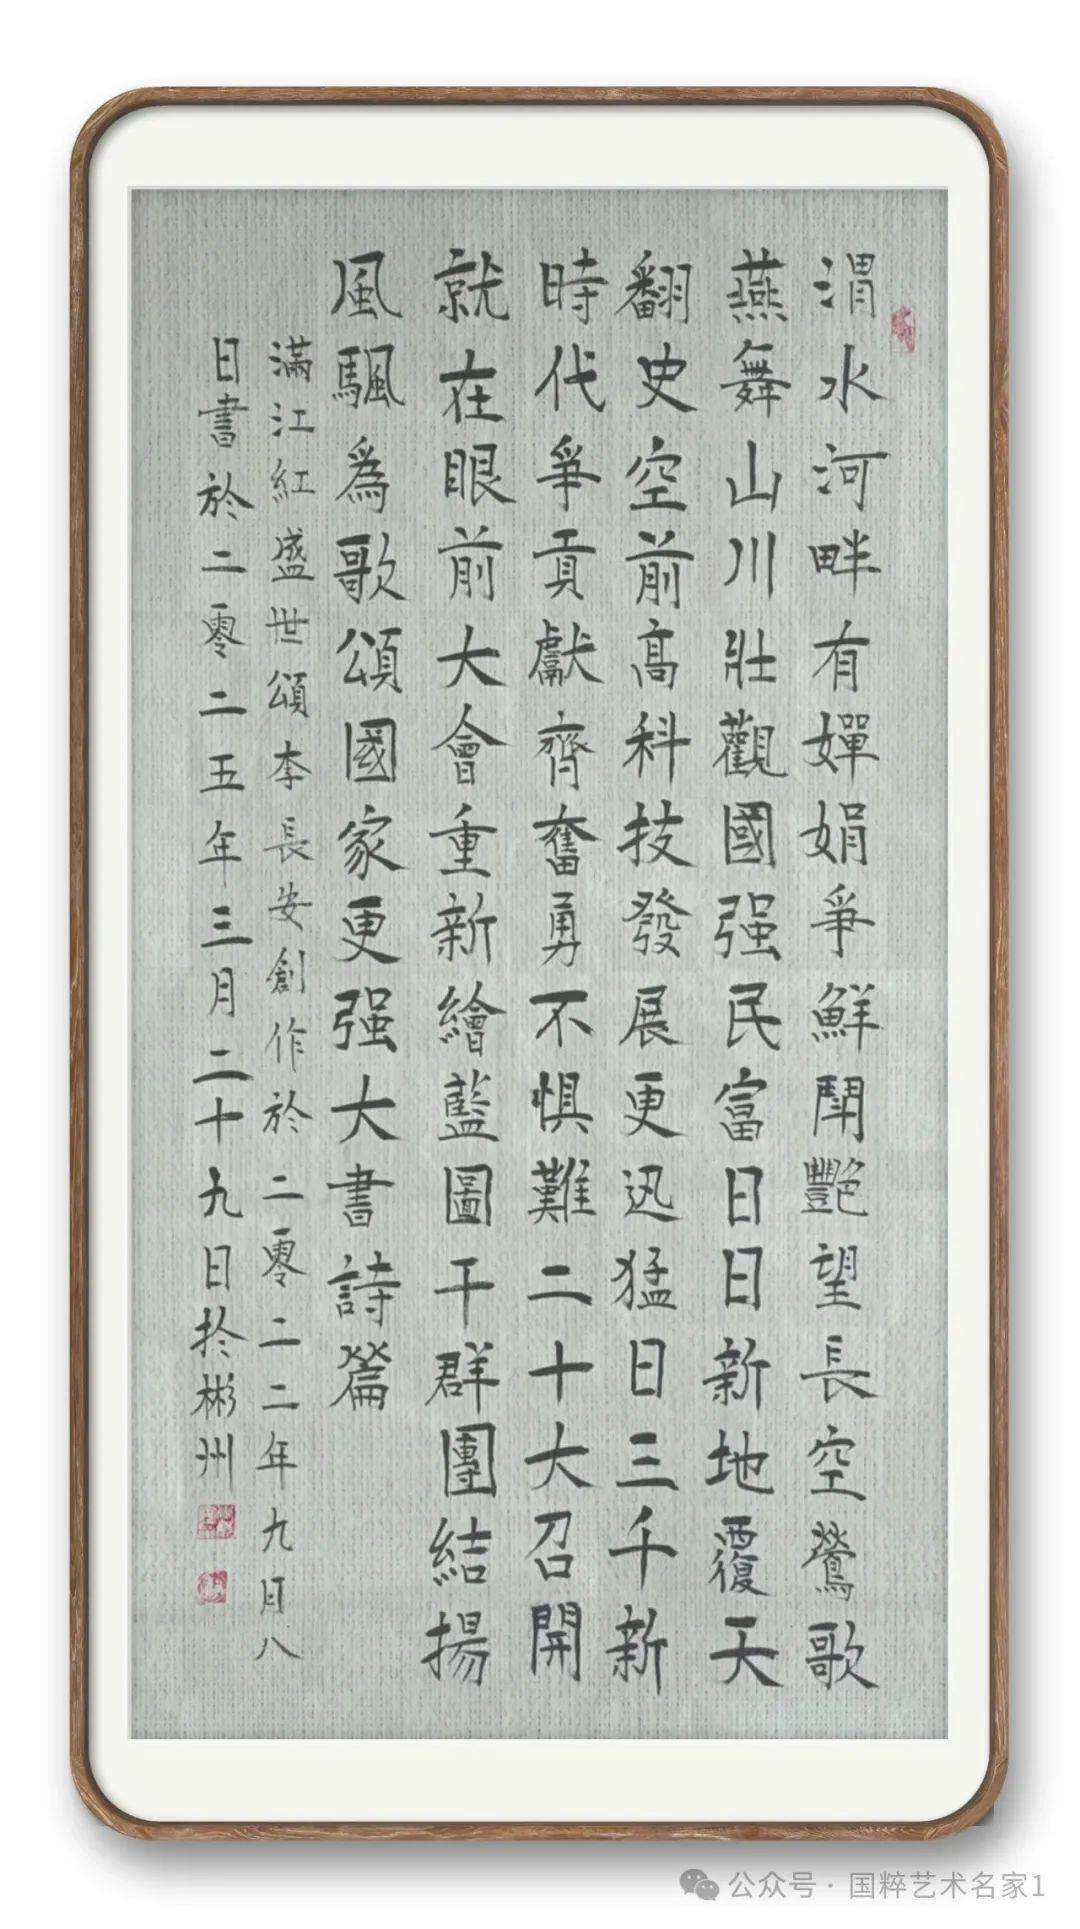 渭水河畔有嬋娟爭鮮鬥艷望長空鶯歌
燕舞山川壯觀國强民富日日新地覆天
翻史空前高科技發展更迅猛日三千新
時代爭貢獻齊奮勇不懼難二十大召開
就在眼前大會重新繪藍圖干群團結揚
風颿為歌頌國家更强大書詩篇
滿江紅盛世頌李長安創作於二零二二年九月八
日書於二零二五年三月二十九日於彬州
公众号 · 国粹艺术名家1